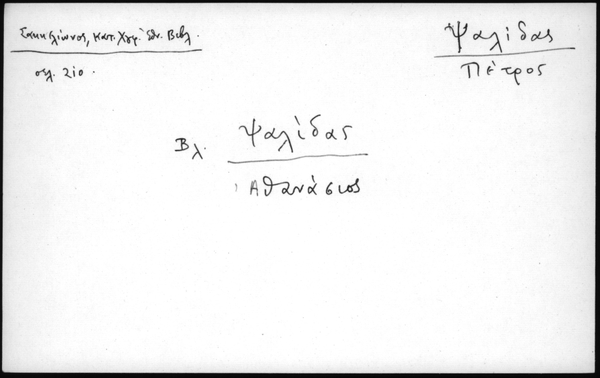 Σακκελίωνος, Κατ. Χειρ. Εθν. Βιβλ.
σελ. 210.
Ψαλίδας
Πέτρος
Βλ. Ψαλίδας
Αθανάσιος